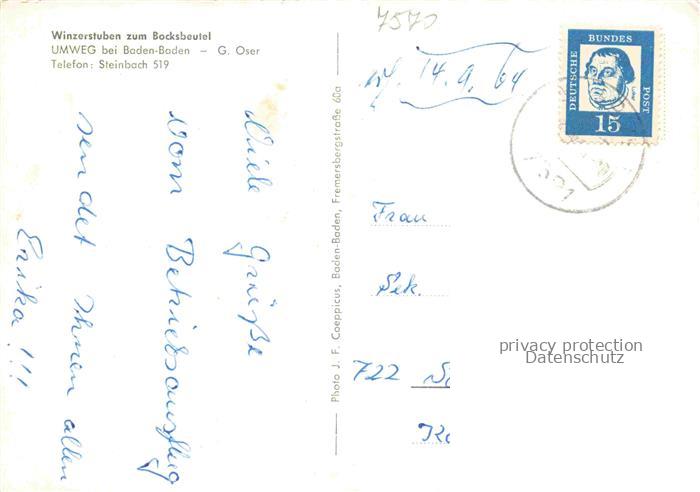 Winzerstuben zum Bocksbeutel
UMWEG bei Baden-Baden – G. Oser
Telefon: Steinbach 519
Viele Grüße
vom Betriebsausflug
sendet Ihnen allen
Erika !!!
Photo J. F. Coeppicus, Baden-Baden, Fremersbergstraße 60a
7570
14.9.64
DEUTSCHE
BUNDES
POST
15
Frau
Sek.
722
privacy protection
Datenschutz